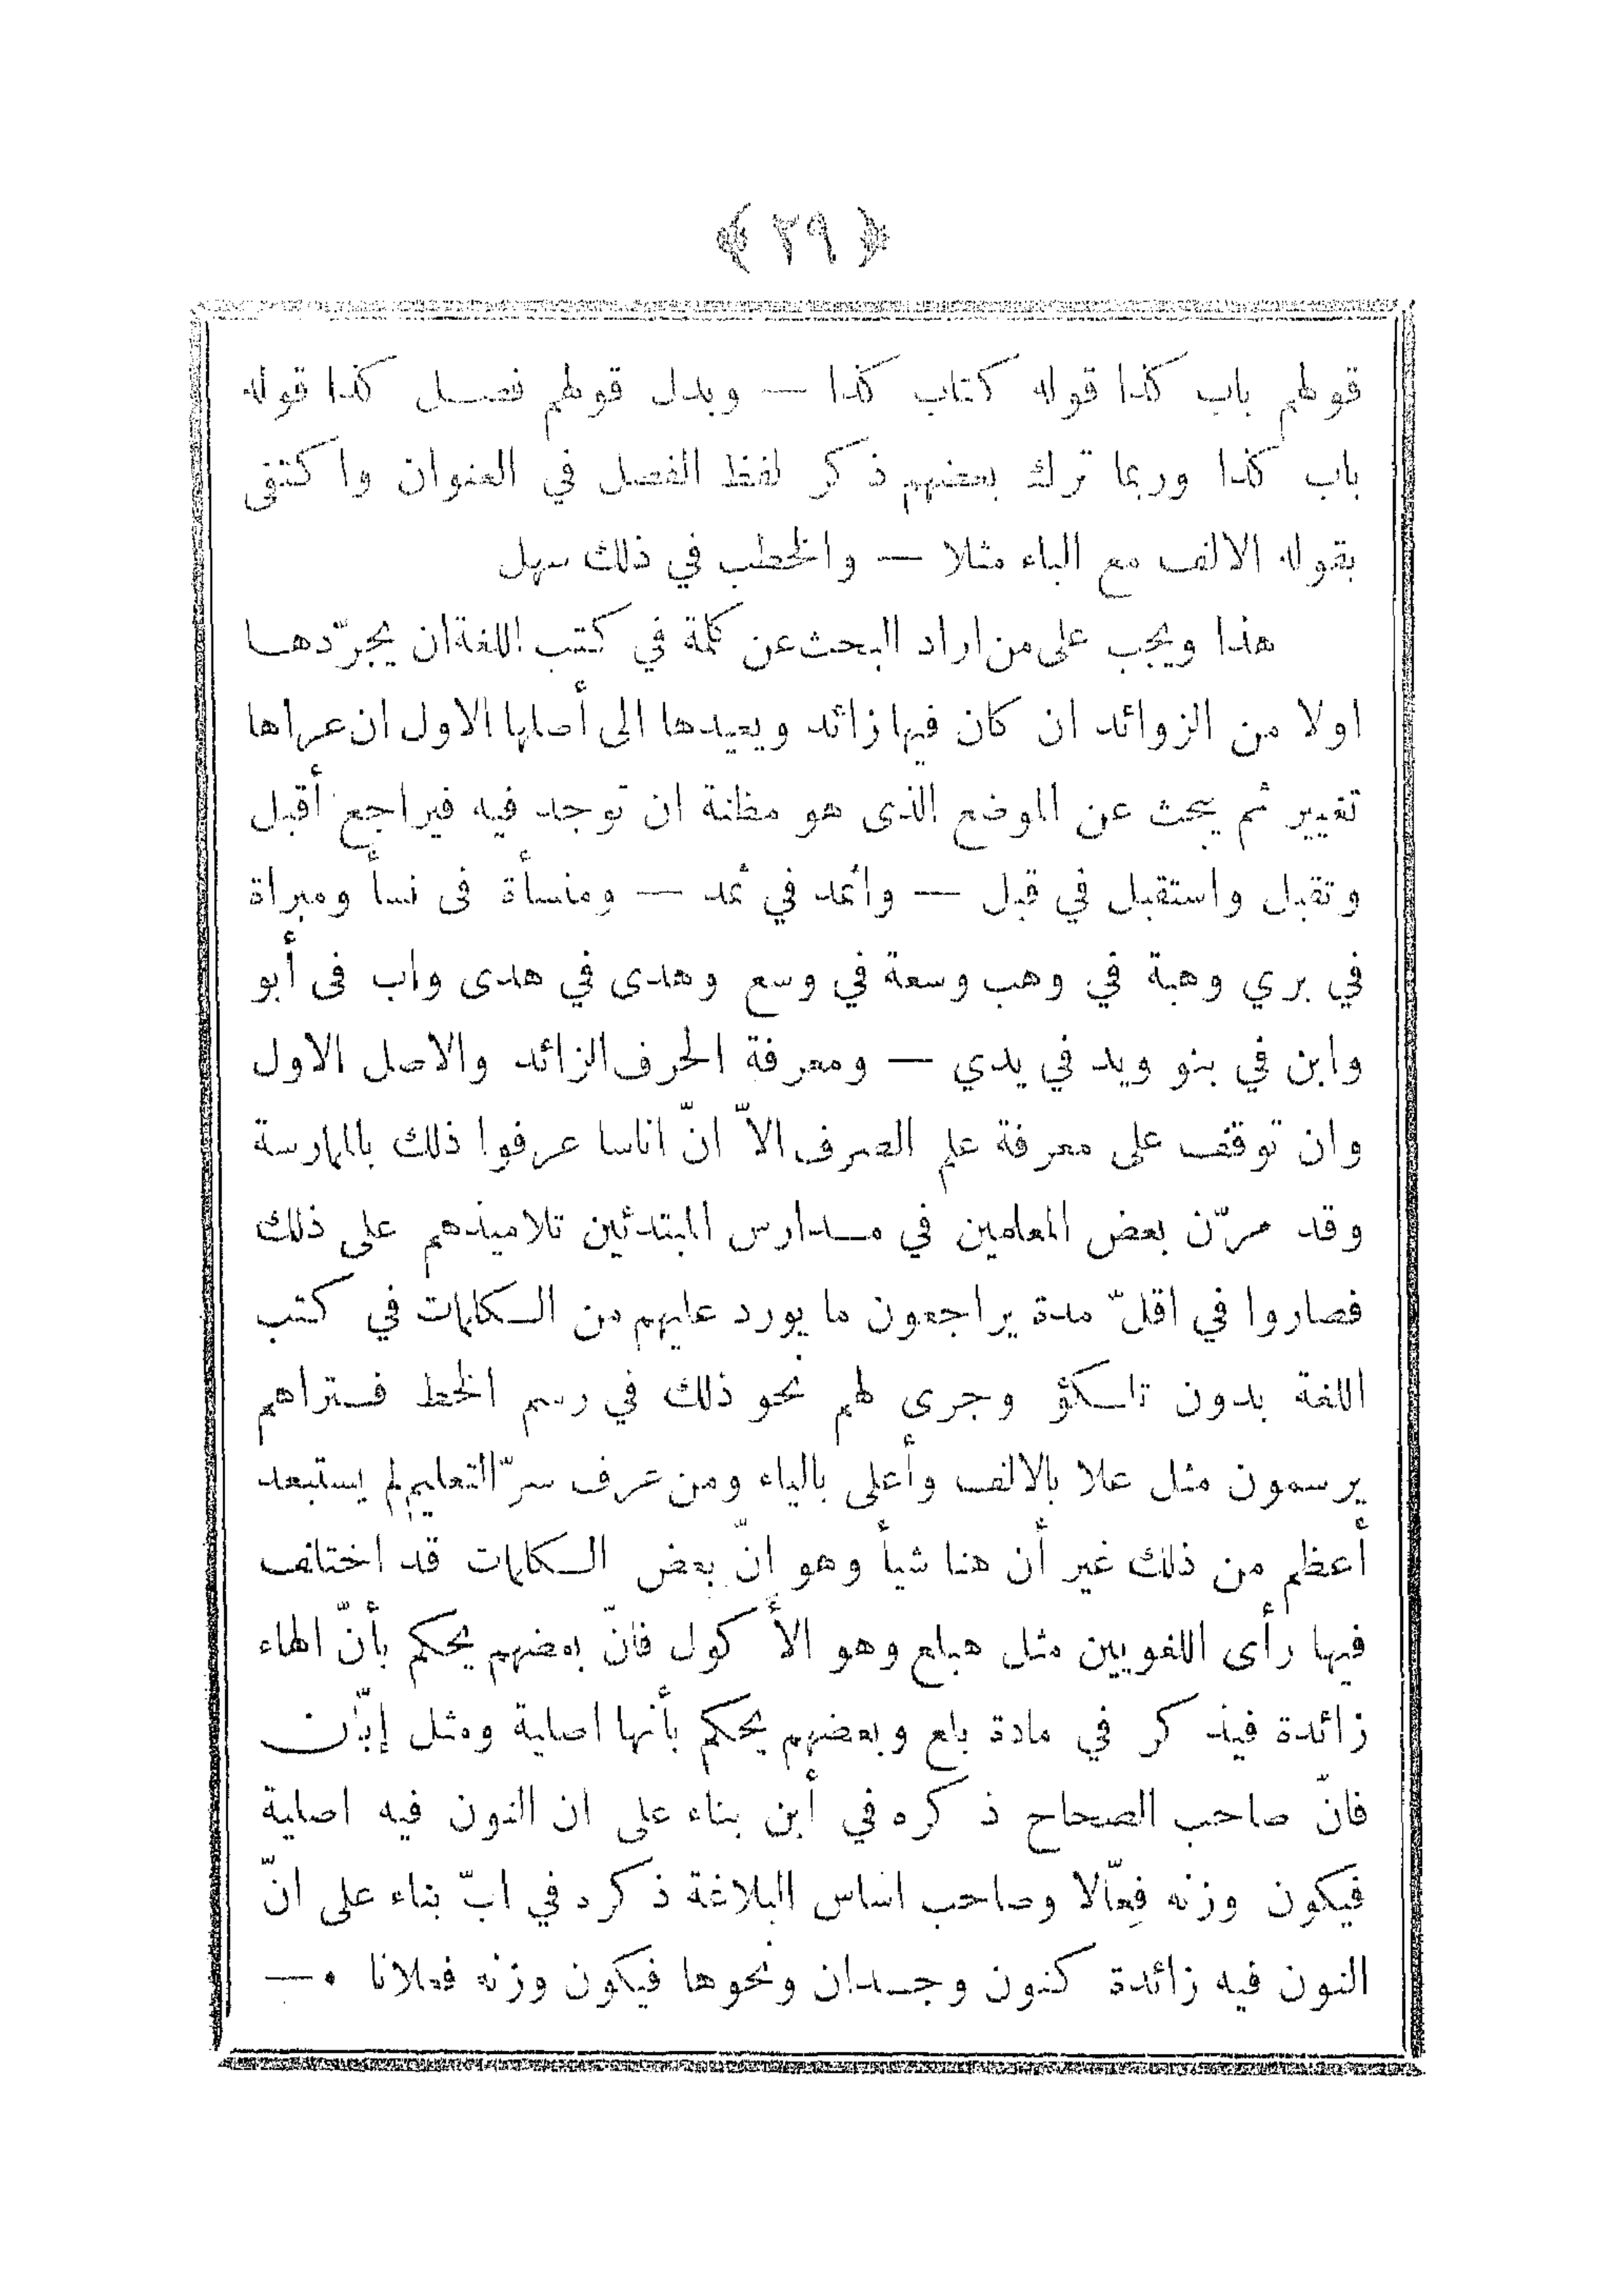 ﴿ ٢٩ ﴾
قولهم باب كذا قوله كتاب كذا — وبدل قولهم فصل كذا قوله
باب كذا وربما ترك بعضهم ذكر لفظ الفصل في العنوان واكتفى
بقوله الالف مع الباء مثلا — والخطب في ذلك سهل
هذا ويجب على من اراد البحث عن كلمة في كتب اللغة ان يجرّدها
اولا من الزوائد ان كان فيها زائد ويعيدها الى أصلها الاول ان عراها
تغيير ثم يبحث عن الموضع الذى هو مظنة ان توجد فيه فيراجع أقبل
وتقبل واستقبل في قبل — وائمد في ثمد — ومنسأة فى نسأ ومبراة
في بري وهبة في وهب وسعة في وسع وهدى في هدى واب فى أبو
وابن في بنو ويد في يدي — ومعرفة الحرف الزائد والاصل الاول
وان توقف على معرفة علم الصرف الاّ انّ اناسا عرفوا ذلك بالممارسة
وقد مرّن بعض المعلمين في مدارس المبتدئين تلاميذهم على ذلك
فصاروا في اقلّ مدة يراجعون ما يورد عليهم من الكلمات في كتب
اللغة بدون تلكؤ وجرى لهم نحو ذلك في رسم الخط فستراهم
يرسمون مثل علا بالالف وأعلى بالياء ومن عرف سرّ التعليم لم يستبعد
أعظم من ذلك غير أن هنا شيأ وهو انّ بعض الكلمات قد اختلف
فيها رأى اللغويين مثل هبلع وهو الأكول فانّ بعضهم يحكم بأنّ الهاء
زائدة فيذكر في مادة بلع وبعضهم يحكم بأنها اصلية ومثل إبّان
فانّ صاحب الصحاح ذكره في أبن بناء على ان النون فيه اصلية
فيكون وزنه فِعّالا وصاحب اساس البلاغة ذكره في ابّ بناء على انّ
النون فيه زائدة كنون وجدان ونحوها فيكون وزنه فعلانا ٠—